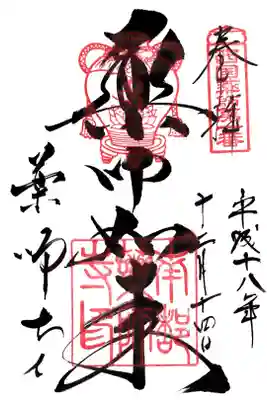 奉拝
平成十八年
十二月十四日
薬師如来
薬師寺